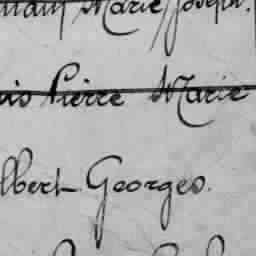 Marie Joseph.
Pierre Marie
lbert Georges.